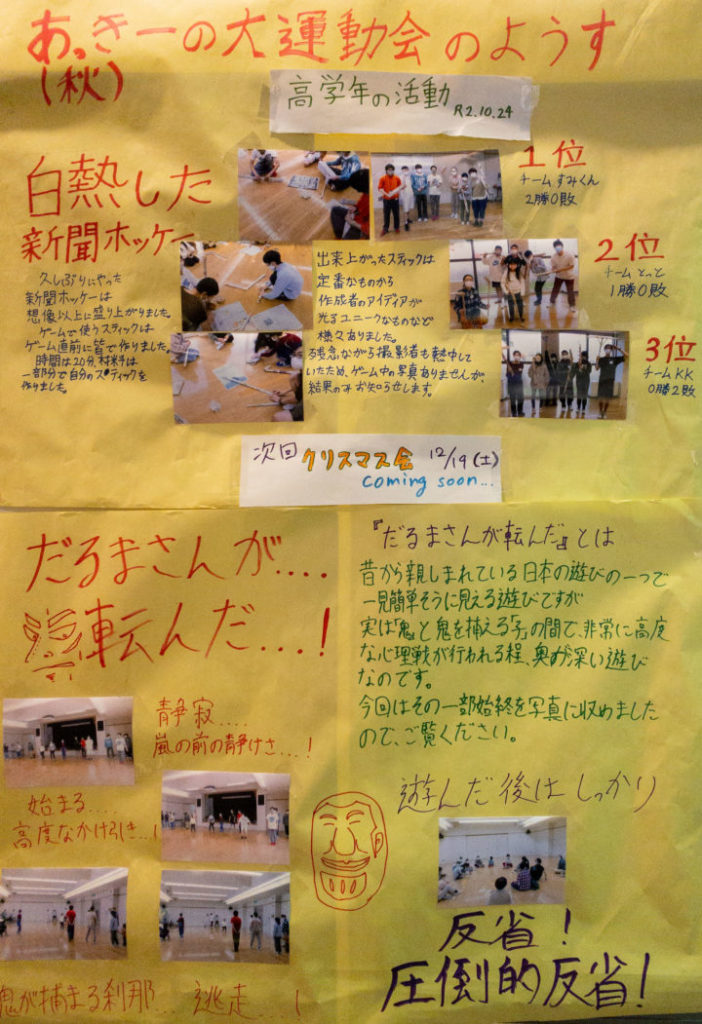 あっきーの大運動会のようす
(秋)
高学年の活動
R2.10.24
白熱した
新聞ホッケー
久しぶりにやった
新聞ホッケーは
想像以上に盛り上がりました。
ゲームで使うスティックは
ゲーム直前に皆で作りました。
時間は20分、材料は
一部分で自分のスティックを
作りました。
出来上がったスティックは
定番なものから
作成者のアイディアが
光るユニークなものなど
様々ありました。
残念ながら撮影者も熱中して
いたため、ゲーム中の写真ありませんが、
結果のみお知らせします。
1位
チームすみくん
2勝0敗
2位
チームとっと
1勝0敗
3位
チームKK
0勝2敗
次回 クリスマス会 12/19(土)
coming soon...
だるまさんが....
転んだ...!
静寂....
嵐の前の静けさ...!
始まる....
高度なかけひき...!
鬼が捕まる刹那... 逃走...!
『だるまさんが転んだ』とは
昔から親しまれている日本の遊びの一つで
一見簡単そうに見える遊びですが
実は「鬼」と鬼を捕える「子」の間で、非常に高度
な心理戦が行われる程、奥が深い遊び
なのです。
今回はその一部始終を写真に収めました
ので、ご覧ください。
遊んだ後はしっかり
反省!
圧倒的反省!